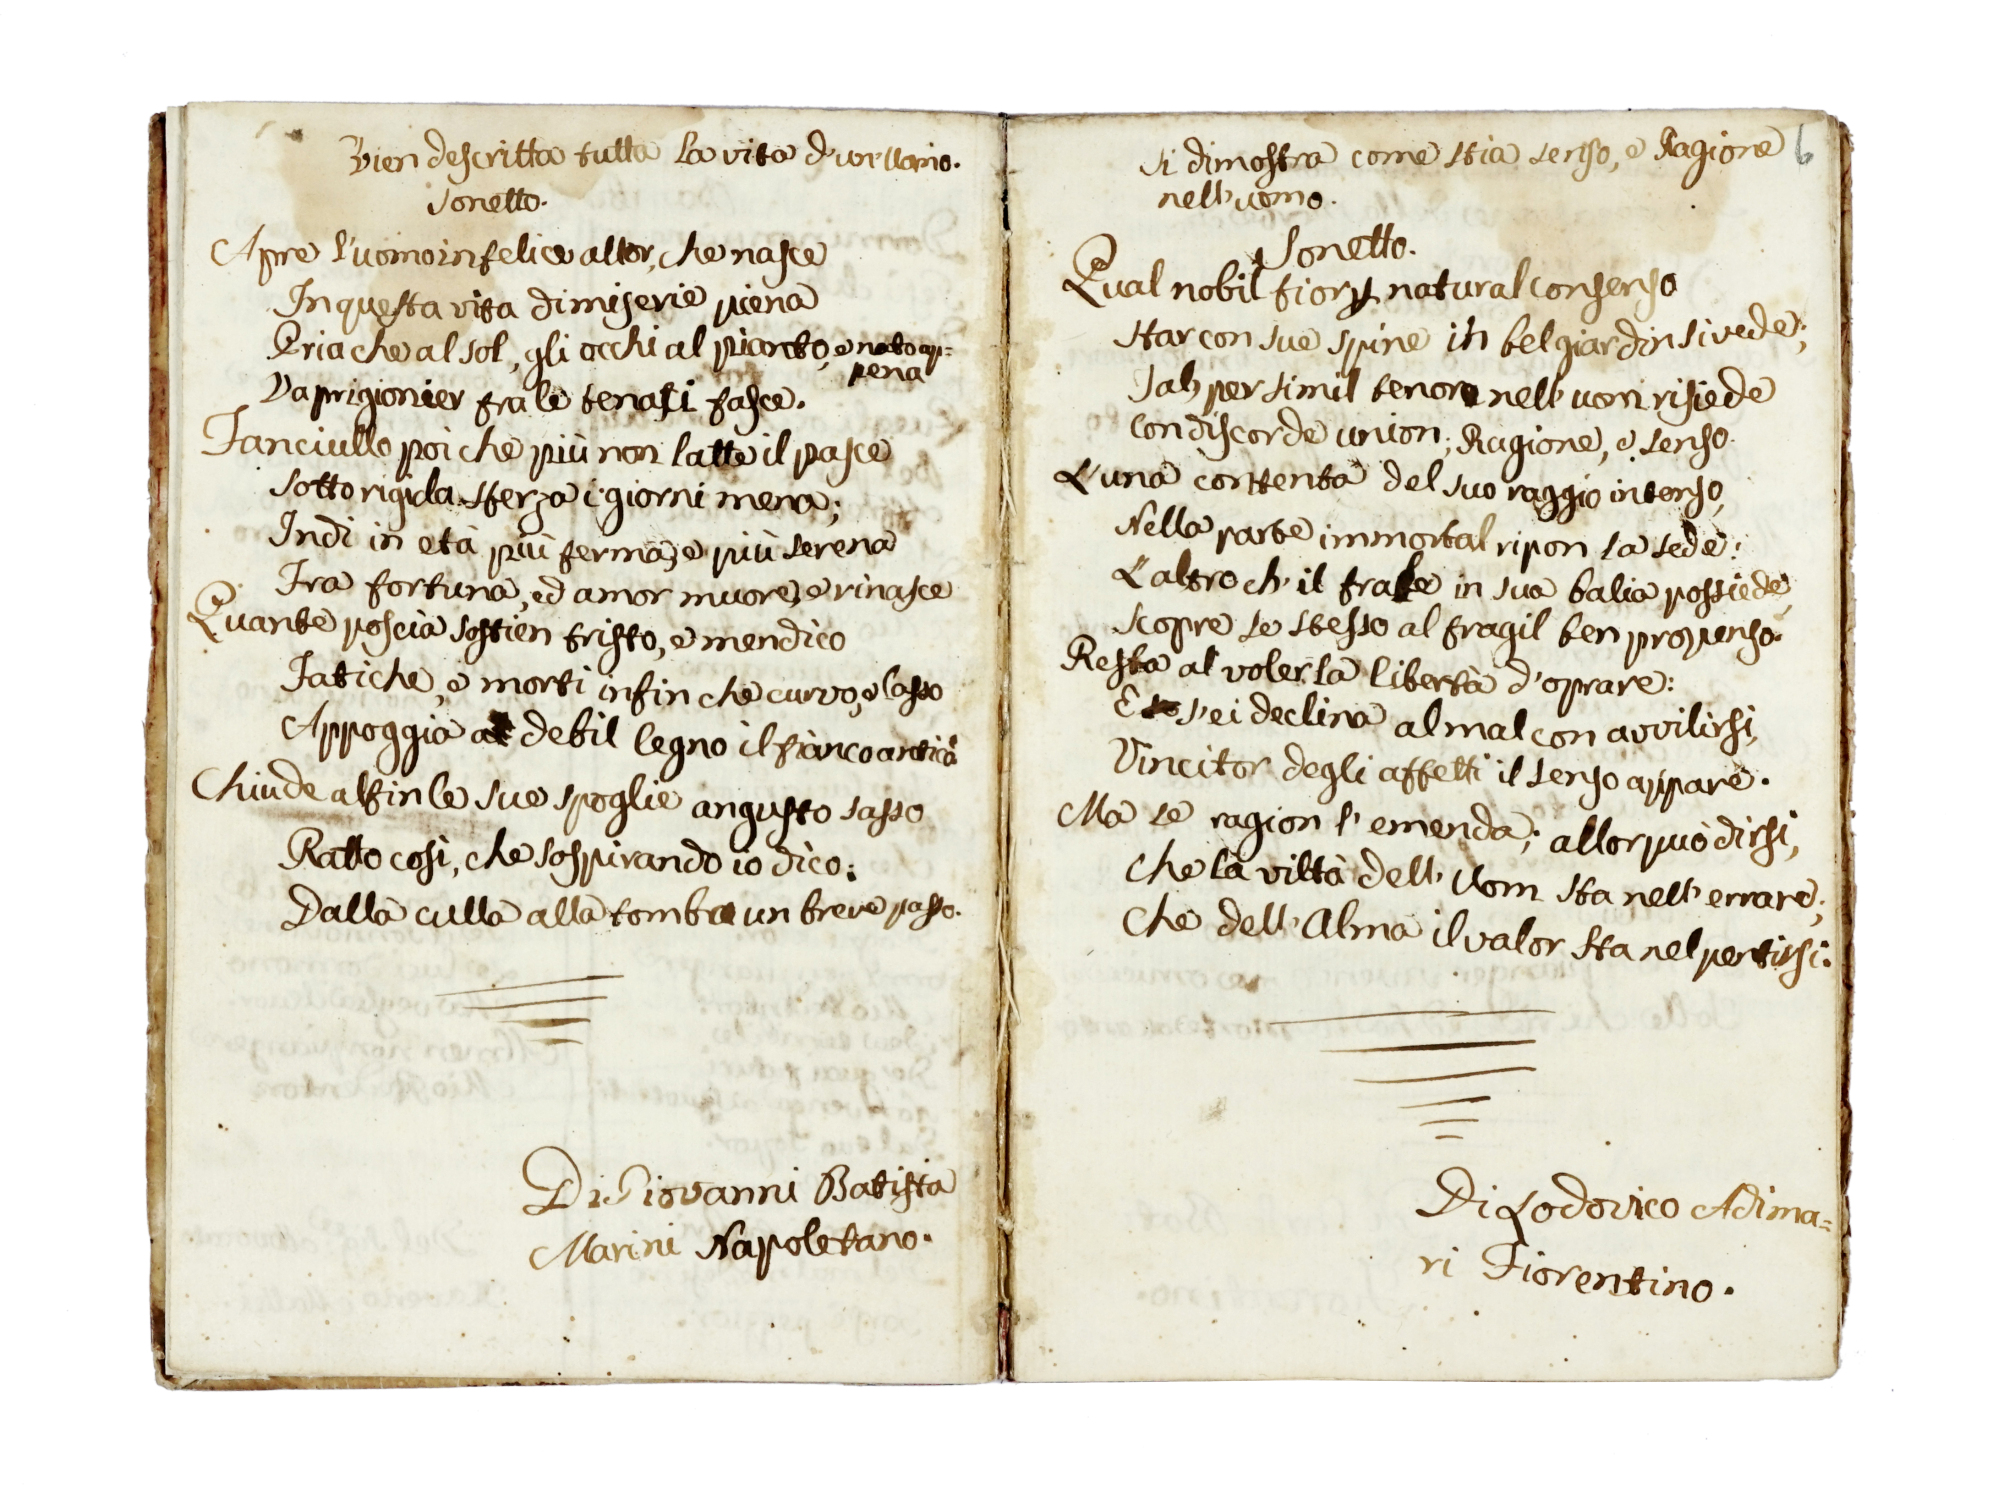 Vien descritta tutta la vita d'un'Uomo.
Sonetto.
Apre l'uomo infelice allor, che nasce
In questa vita di miserie piena
Pria che al sol, gli occhi al pianto, e nato ap=
pena
Va prigionier fra le tenaci fasce.
Fanciullo poi che più non latte il pasce
Sotto rigida sferza i giorni mena;
Indi in età più ferma, e più serena
Fra fortuna, ed amor muore, e rinasce
Quante poscia sostien tristo, e mendico
Fatiche, e morti infin che curvo, e lasso
Appoggia a debil legno il fianco antico
Chiude alfin le sue spoglie angusto sasso
Ratto così, che sospirando io dico:
Dalla culla alla tomba un breve passo.
Di Giovanni Batista
Marini Napoletano.
6
Si dimostra come stia senso, e Ragione
nell'uomo.
Sonetto.
Qual nobil fior p natural consenso
Star con sue spine in bel giardin si vede;
Tal, per simil tenore nell'uom risiede
Con discorde union; Ragione, e senso.
L'una contenta del suo raggio intenso,
Nella parte immortal ripon la sede:
L'altro ch'il frale in sua balia possiede,
Scopre se stesso al fragil ben propenso.
Resta al voler la libertà d'oprare:
E s'ei declina al mal con avvilirsi,
Vincitor degli affetti il senso appare.
Ma se ragion l'emenda; allor può dirsi,
Che la viltà dell'Uom sta nell'errare;
Che dell'Alma il valor sta nel pentirsi.
Di Lodovico Adima=
ri Fiorentino.